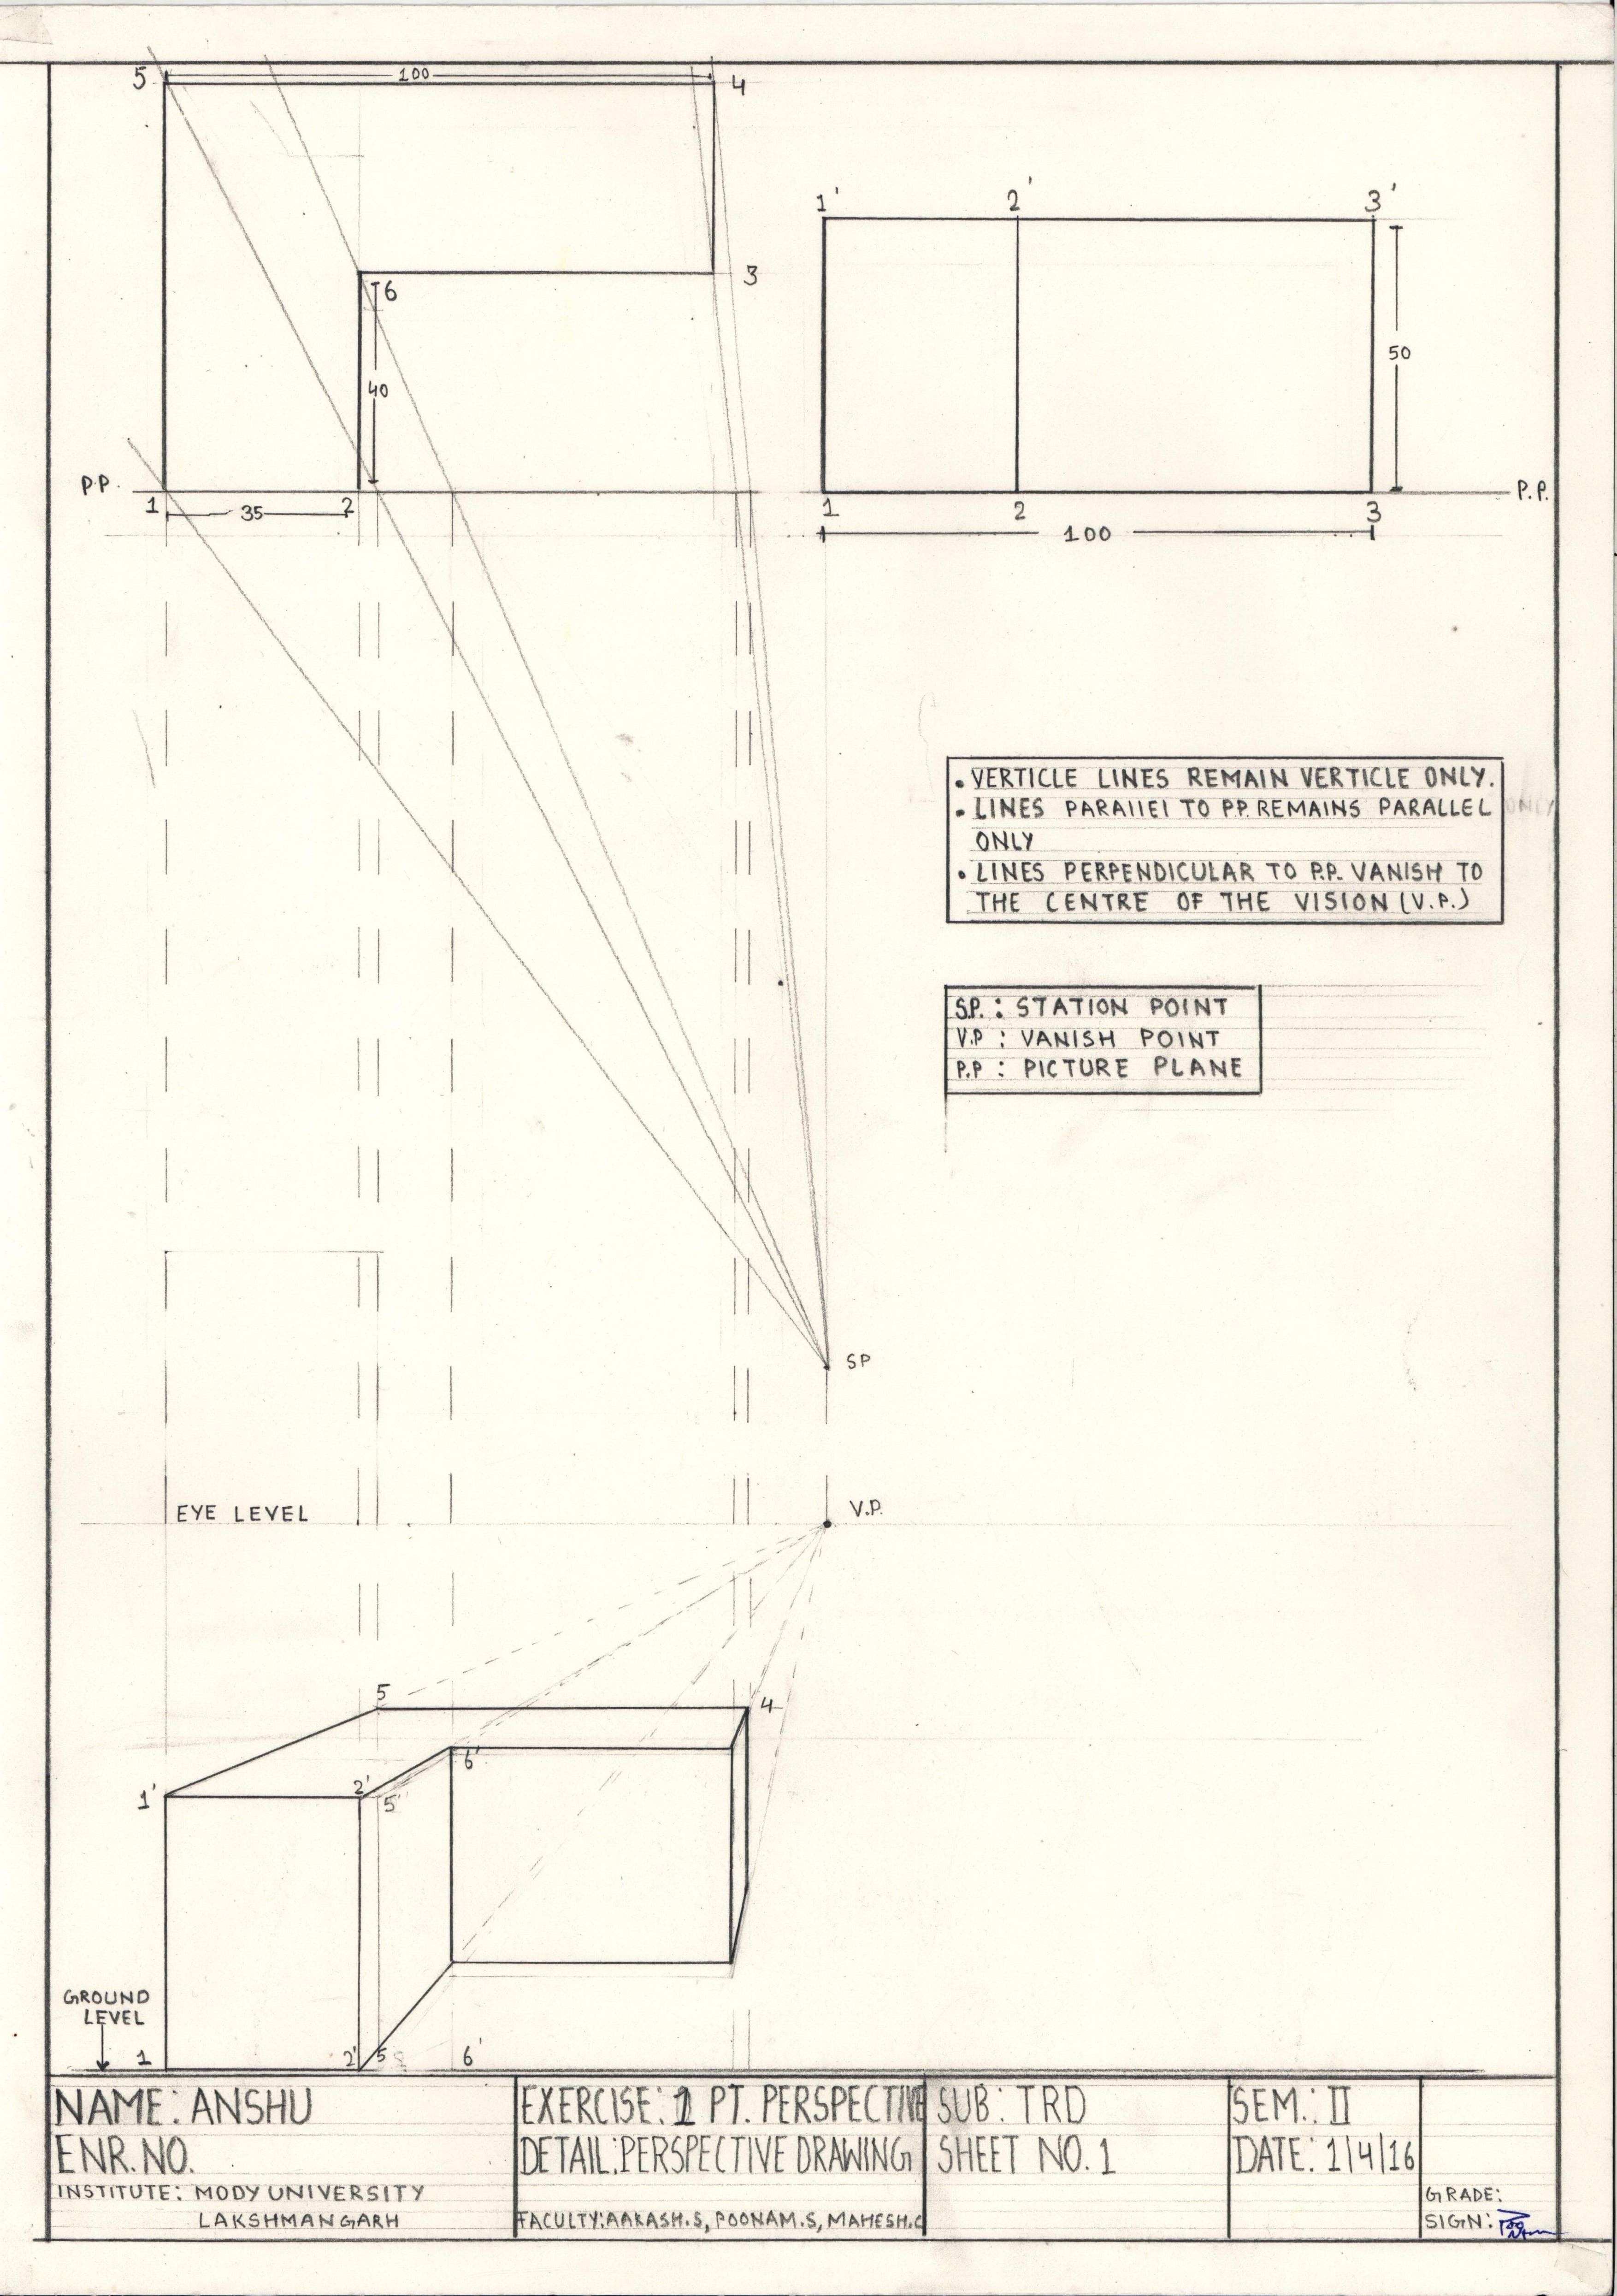 5
100
4
3
6
40
P.P.
1
35
2
1'
2'
3'
50
P.P.
1
2
3
100
• VERTICLE LINES REMAIN VERTICLE ONLY.
• LINES PARAllEl TO P.P. REMAINS PARALLEL
ONLY
• LINES PERPENDICULAR TO P.P. VANISH TO
THE CENTRE OF THE VISION (V.P.)
S.P. : STATION POINT
V.P : VANISH POINT
P.P : PICTURE PLANE
SP
EYE LEVEL
V.P.
5
4
6'
1'
2'
5'
GROUND
LEVEL
1
2'
5
6'
NAME: ANSHU
ENR. NO.
INSTITUTE: MODY UNIVERSITY
LAKSHMANGARH
EXERCISE: 1 PT. PERSPECTIVE
DETAIL: PERSPECTIVE DRAWING
FACULTY: AAKASH.S, POONAM.S, MAHESH.C
SUB: TRD
SHEET NO. 1
SEM.: II
DATE: 1/4/16
GRADE:
SIGN: